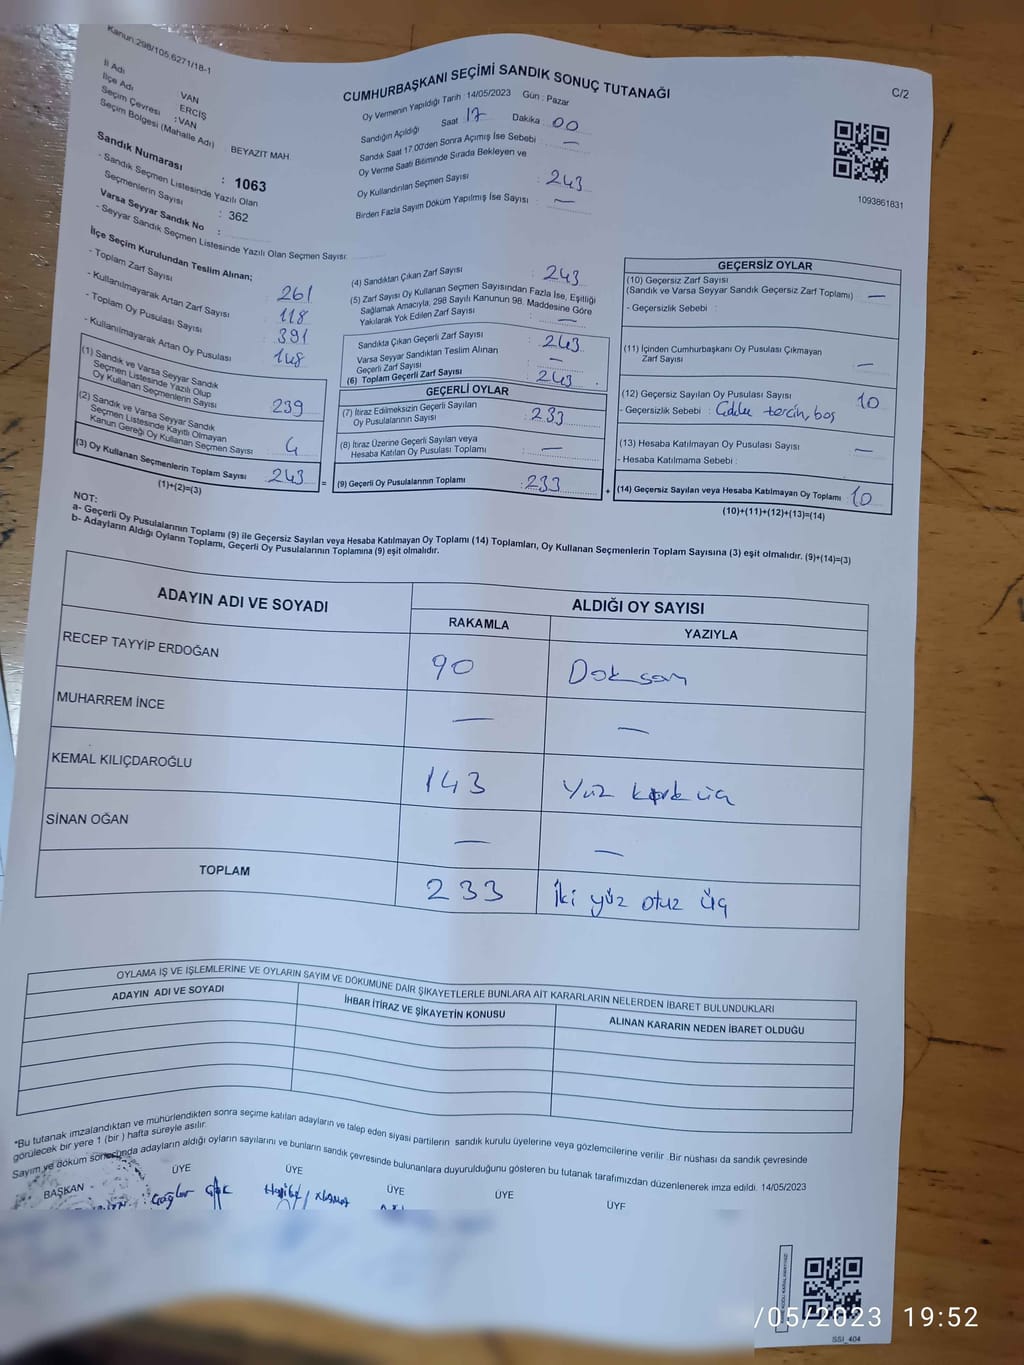 Kanun:298/105,6271/18-1
CUMHURBAŞKANI SEÇİMİ SANDIK SONUÇ TUTANAĞI
C/2
İl Adı : VAN
İlçe Adı : ERCİŞ
Seçim Çevresi : VAN
Seçim Bölgesi (Mahalle Adı) BEYAZIT MAH.
Sandık Numarası : 1063
- Sandık Seçmen Listesinde Yazılı Olan
Seçmenlerin Sayısı : 362
Varsa Seyyar Sandık No :
- Seyyar Sandık Seçmen Listesinde Yazılı Olan Seçmen Sayısı:
Oy Vermenin Yapıldığı Tarih 14/05/2023 Gün : Pazar
Sandığın Açıldığı Saat 17 Dakika 00
Sandık Saat 17.00'den Sonra Açımış İse Sebebi —
Oy Verme Saati Bitiminde Sırada Bekleyen ve
Oy Kullandırılan Seçmen Sayısı : 243
Birden Fazla Sayım Döküm Yapılmış İse Sayısı : —
1093861831
İlçe Seçim Kurulundan Teslim Alınan;
- Toplam Zarf Sayısı : 261
- Kullanılmayarak Artan Zarf Sayısı : 118
- Toplam Oy Pusulası Sayısı : 391
- Kullanılmayarak Artan Oy Pusulası : 148
(1) Sandık ve Varsa Seyyar Sandık
Seçmen Listesinde Yazılı Olup
Oy Kullanan Seçmenlerin Sayısı : 239
(2) Sandık ve Varsa Seyyar Sandık
Seçmen Listesinde Kayıtlı Olmayan
Kanun Gereği Oy Kullanan Seçmen Sayısı : 4
(3) Oy Kullanan Seçmenlerin Toplam Sayısı : 243
(1)+(2)=(3)
=
(4) Sandıktan Çıkan Zarf Sayısı : 243
(5) Zarf Sayısı Oy Kullanan Seçmen Sayısından Fazla İse, Eşitliği
Sağlamak Amacıyla, 298 Sayılı Kanunun 98. Maddesine Göre
Yakılarak Yok Edilen Zarf Sayısı : —
Sandıkta Çıkan Geçerli Zarf Sayısı : 243
Varsa Seyyar Sandıktan Teslim Alınan
Geçerli Zarf Sayısı : —
(6) Toplam Geçerli Zarf Sayısı : 243
GEÇERLİ OYLAR
(7) İtiraz Edilmeksizin Geçerli Sayılan
Oy Pusulasının Sayısı : 233
(8) İtiraz Üzerine Geçerli Sayılan veya
Hesaba Katılan Oy Pusulası Toplamı : —
(9) Geçerli Oy Pusulalarının Toplamı : 233
+
GEÇERSİZ OYLAR
(10) Geçersiz Zarf Sayısı
(Sandık ve Varsa Seyyar Sandık Geçersiz Zarf Toplamı) : —
- Geçersizlik Sebebi :
(11) İçinden Cumhurbaşkanı Oy Pusulası Çıkmayan
Zarf Sayısı : —
(12) Geçersiz Sayılan Oy Pusulası Sayısı : 10
- Geçersizlik Sebebi : tercih, boş
(13) Hesaba Katılmayan Oy Pusulası Sayısı : —
- Hesaba Katılmama Sebebi :
(14) Geçersiz Sayılan veya Hesaba Katılmayan Oy Toplamı : 10
(10)+(11)+(12)+(13)=(14)
NOT:
a- Geçerli Oy Pusulalarının Toplamı (9) ile Geçersiz Sayılan veya Hesaba Katılmayan Oy Toplamı (14) Toplamları, Oy Kullanan Seçmenlerin Toplam Sayısına (3) eşit olmalıdır. (9)+(14)=(3)
b- Adayların Aldığı Oyların Toplamı, Geçerli Oy Pusulalarının Toplamına (9) eşit olmalıdır.
ADAYIN ADI VE SOYADI
ALDIĞI OY SAYISI
RAKAMLA YAZIYLA
RECEP TAYYİP ERDOĞAN 90 Doksan
MUHARREM İNCE — —
KEMAL KILIÇDAROĞLU 143 Yüz kırk üç
SİNAN OĞAN — —
TOPLAM 233 İki yüz otuz üç
OYLAMA İŞ VE İŞLEMLERİNE VE OYLARIN SAYIM VE DÖKÜMÜNE DAİR ŞİKAYETLERLE BUNLARA AİT KARARLARIN NELERDEN İBARET BULUNDUKLARI
ADAYIN ADI VE SOYADI İHBAR İTİRAZ VE ŞİKAYETİN KONUSU ALINAN KARARIN NEDEN İBARET OLDUĞU
*Bu tutanak imzalandıktan ve mühürlendikten sonra seçime katılan adayların ve talep eden siyasi partilerin sandık kurulu üyelerine veya gözlemcilerine verilir .Bir nüshası da sandık çevresinde
görülecek bir yere 1 (bir ) hafta süreyle asılır.
Sayım ve döküm sonucunda adayların aldığı oyların sayılarını ve bunların sandık çevresinde bulunanlara duyurulduğunu gösteren bu tutanak tarafımızdan düzenlenerek imza edildi. 14/05/2023
BAŞKAN ÜYE ÜYE ÜYE ÜYE ÜYE
/05/2023 19:52
SSI_404